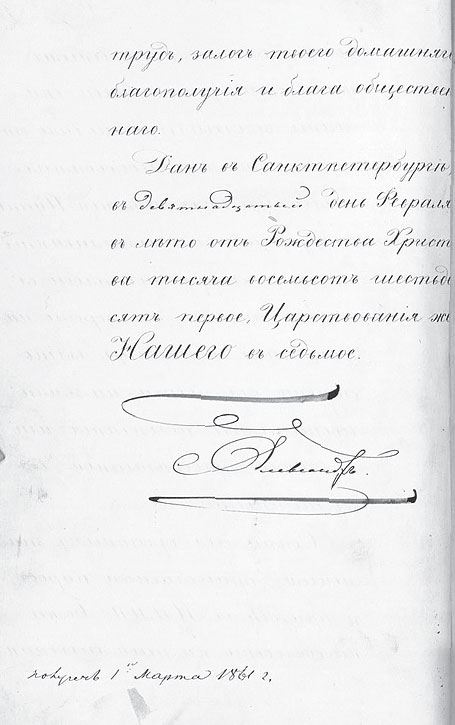 трудъ, залогъ твоего домашняго
благополучія и блага обществен
наго.
Данъ въ Санктпетербургѣ,
въ девятнадцатый день Февраля
въ лѣто отъ Рождества Христ
ва тысяча восемьсотъ шестьде
сятъ первое, Царствованія же
Нашего въ седьмое.
Александръ.
1го Марта 1861 г.